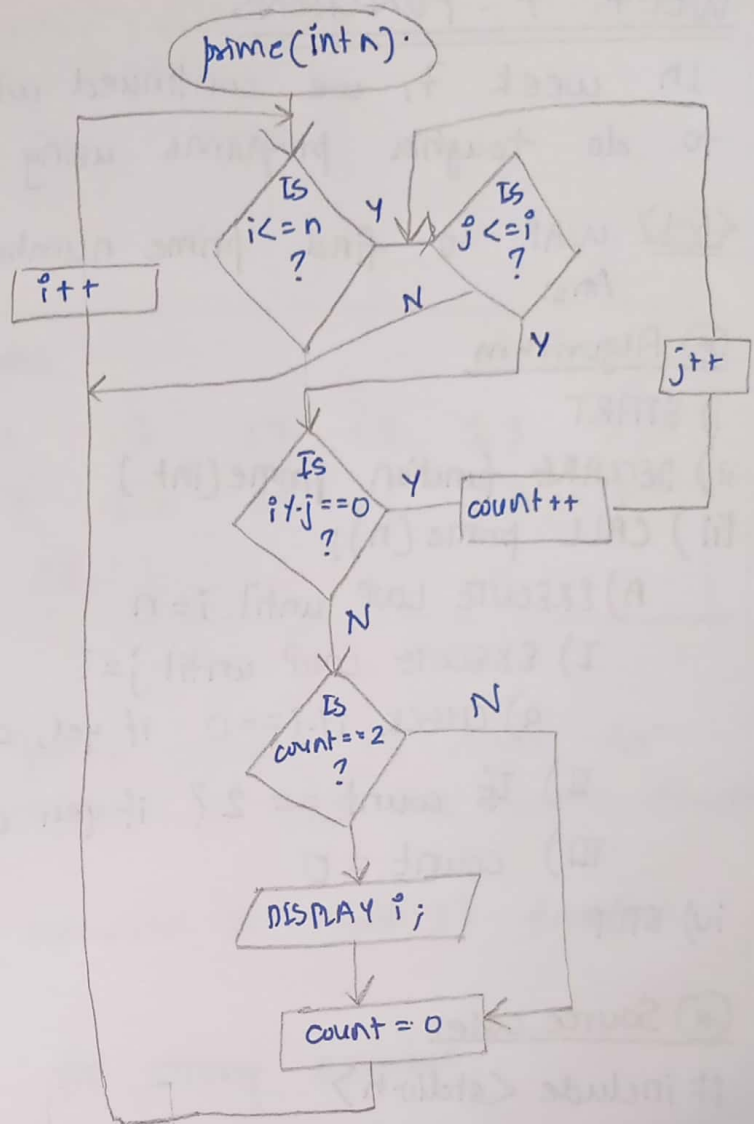 prime(int n).
Is
i<=n
?
Y
Is
j<=i
?
i++
N
Y
j++
Is
i%j==0
?
Y
count++
N
Is
count==2
?
N
DISPLAY i;
count = 0